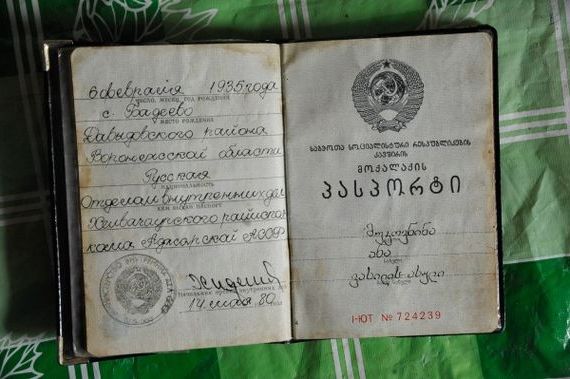 6 февраля 1935 года
число, месяц, год рождения
с. Бадеево
место рождения
Давыдовского района
Воронежской области
Русская
национальность
Отделом внутренних дел
кем выдан паспорт
Хелвачаурского райиспол-
кома Аджарской АССР
14 мая 80 года
ᲡᲐᲑᲭᲝᲗᲐ ᲡᲝᲪᲘᲐᲚᲘᲡᲢᲣᲠᲘ ᲠᲔᲡᲞᲣᲑᲚᲘᲙᲔᲑᲘᲡ
ᲙᲐᲕᲨᲘᲠᲘᲡ
ᲛᲝᲥᲐᲚᲐᲥᲘᲡ
ᲞᲐᲡᲞᲝᲠᲢᲘ
ანა
სახელი
ვასილის ასული
I-ЮТ № 724239